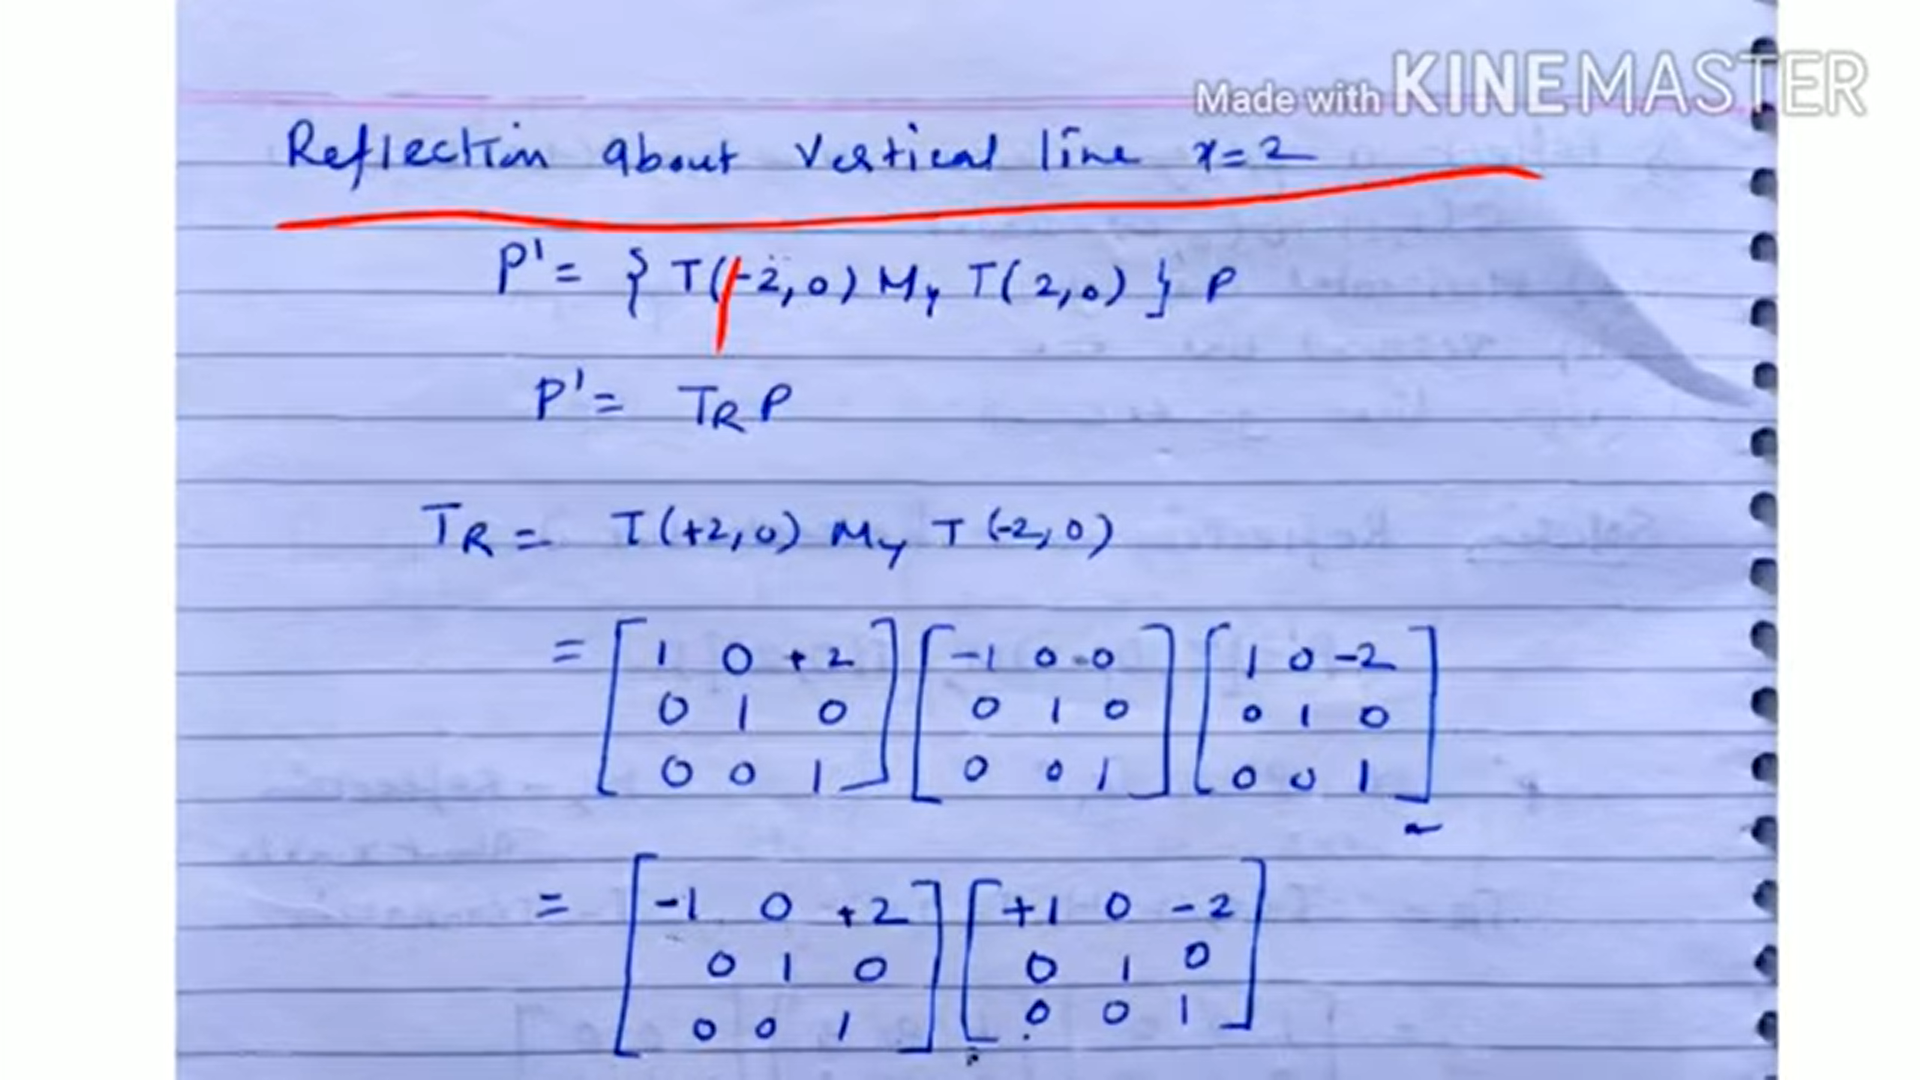 Made with KINEMASTER
Reflection about vertical line x=2
P' = { T(-2,0) My T(2,0) } P
P' = TR P
TR = T(+2,0) My T(-2,0)
= [1 0 +2] [-1 0 0] [1 0 -2]
[0 1 0] [0 1 0] [0 1 0]
[0 0 1] [0 0 1] [0 0 1]
= [-1 0 +2] [+1 0 -2]
[0 1 0] [0 1 0]
[0 0 1] [0 0 1]